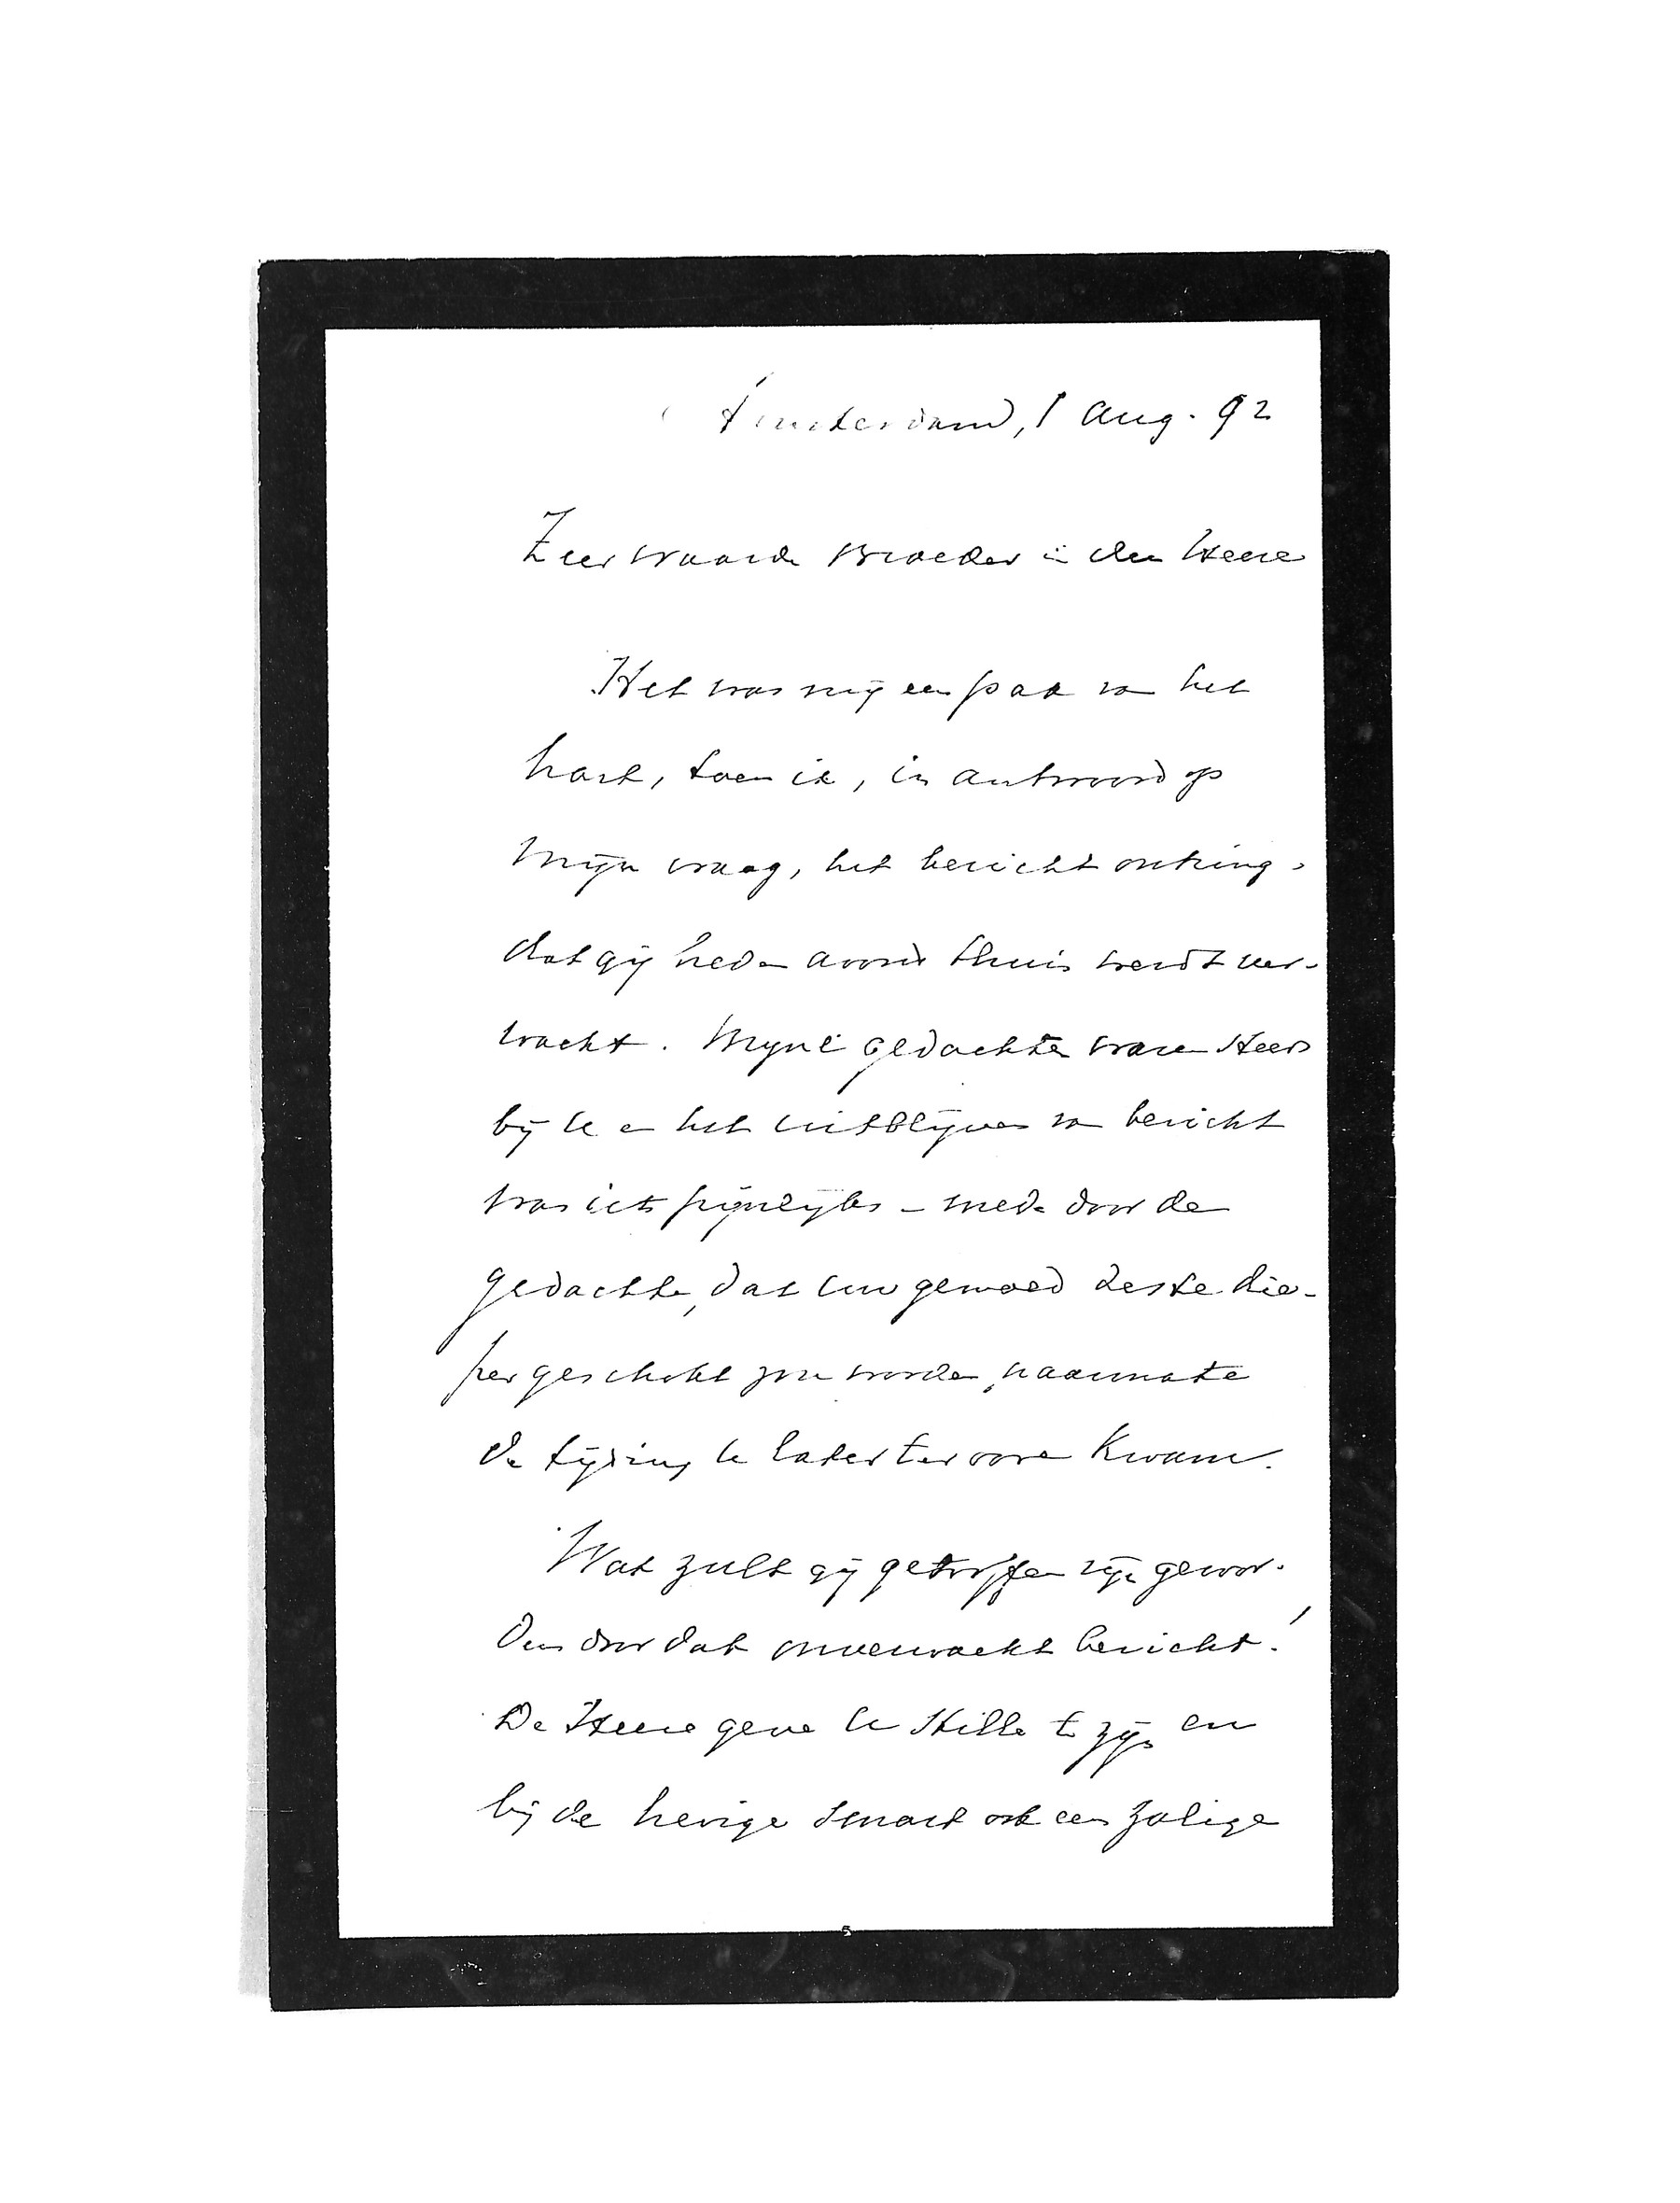 Amsterdam, 1 Aug. 92
Zeer waarde Broeder in den Heere
Het was mij een pak van het
hart, toen ik, in antwoord op
mijn vraag, het bericht ontving,
dat gij heden avond thuis werdt ver-
wacht. Mijne gedachten waren steeds
bij U en het uitblijven van bericht
was iets pijnlijks - mede door de
gedachte, dat uw gemoed deste die-
per geschokt zou worden, naarmate
de tijding U later ter oore kwam.
Wat zult gij getroffen zijn gewor-
den door dat onverwacht bericht!
De Heere geve U stille te zijn en
bij de hevige smart ook een zalige
5